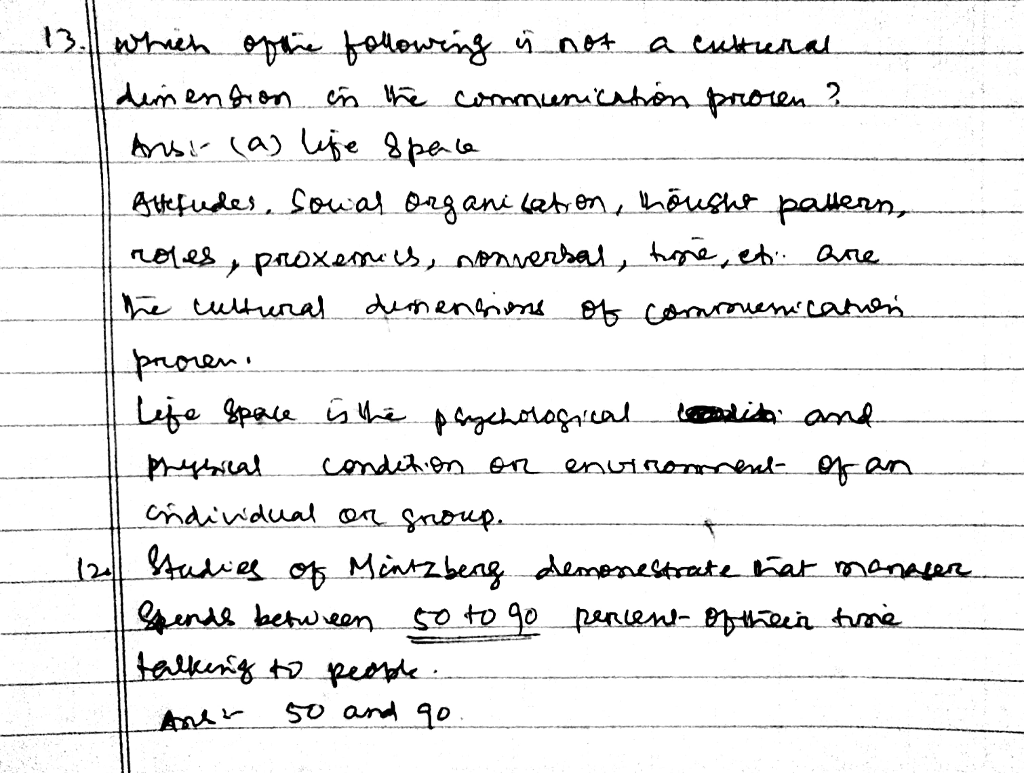 13. which of the following is not a cultural
dimension in the communication process ?
Ans:- (a) life space
Attitudes, Social Organisation, thought pattern,
roles, proxemics, nonverbal, time, etc. are
the cultural dimensions of communication
process.
Life space is the psychological and
physical condition or environment of an
individual or group.
12. Studies of Mintzberg demonestrate that manager
Spends between 50 to 90 percent of their time
talking to people.
Ans:- 50 and 90